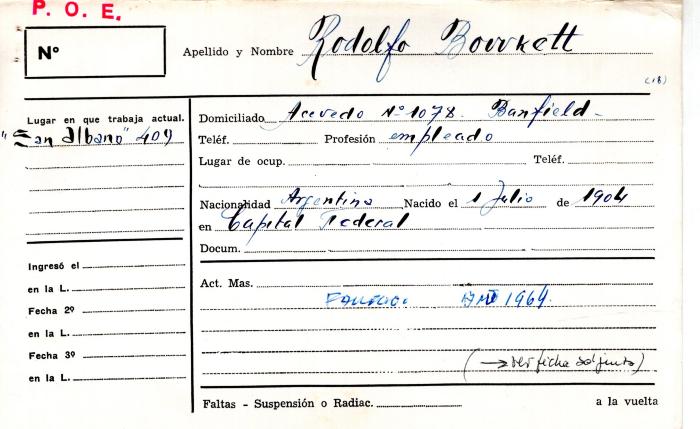 P. O. E.
Nº
Apellido y Nombre Rodolfo Bourkett
(18)
Lugar en que trabaja actual.
"San Albano" 409
Domiciliado Acevedo Nº 1078. Banfield-
Teléf. Profesión empleado
Lugar de ocup. Teléf.
Nacionalidad Argentino Nacido el 1 Julio de 1904
en Capital Federal
Docum.
Ingresó el
en la L.
Fecha 2º
en la L.
Fecha 3º
en la L.
Act. Mas.
1964.
(→ ver ficha adjunta)
Faltas - Suspensión o Radiac. a la vuelta